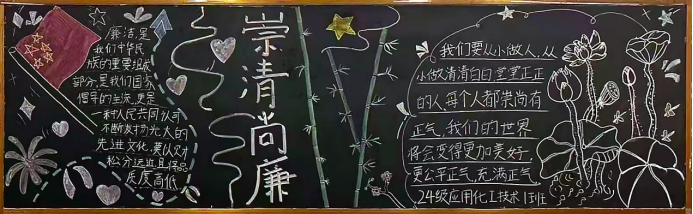 廉洁是
我们中华民
族的重要组成
部分,是我们国家
倡导的主流,更是
一种人民共同认可
不断发扬光大的
先进文化,莫以
质度高低
崇清尚廉
我们要从小做人,从
小做清清白白堂堂正正
的人每个人都崇尚有
正气,我们的世界
将会变得更加美好,
更公平正气,充满正气
24级应用化工技术1班